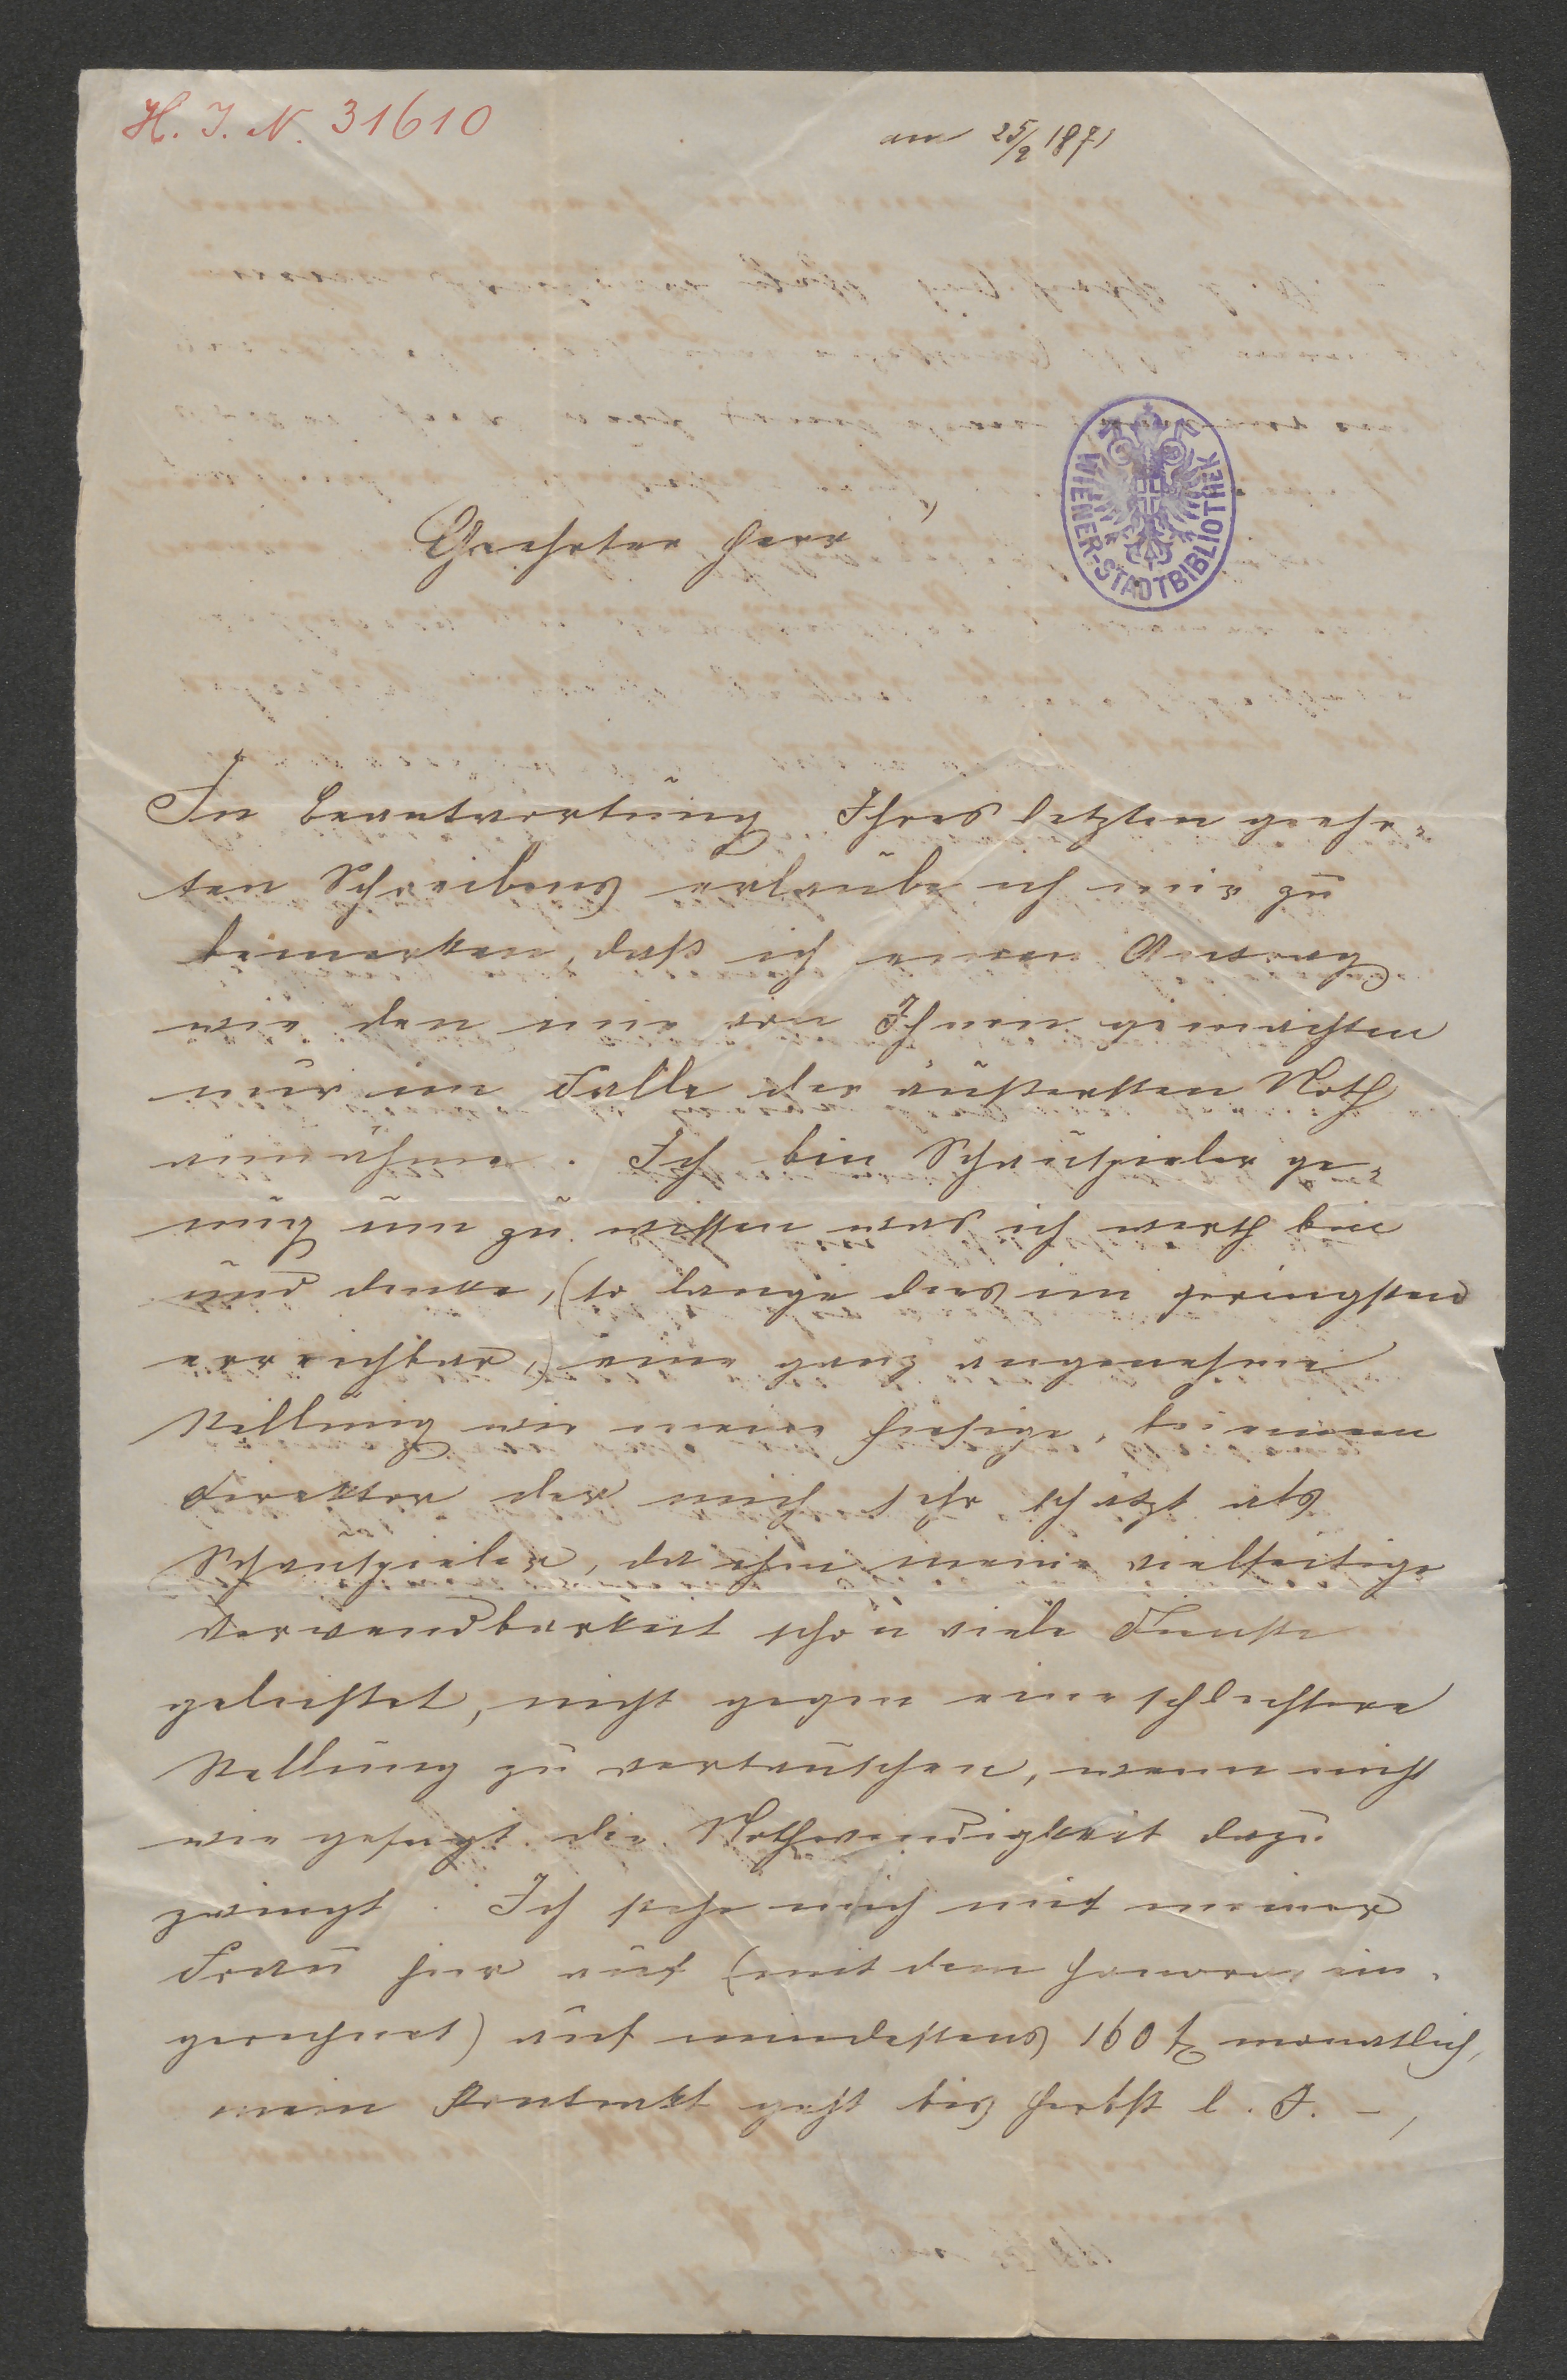 H. I. N. 31610
am 25/2 1871
WIENER-STADTBIBLIOTHEK
Geehrter Herr
In Beantwortung Ihres letzten geehr-
ten Schreibens erlaube ich mir zu
bemerken, daß ich einen Antrag
wie den mir von Ihnen gemachten
nur im Falle der äußersten Noth
annähme. Ich bin Schauspieler ge-
nug um zu wissen was ich werth bin
und denke, (so lange das im geringsten
erreichbar,) eine ganz angenehme
Stellung wie meine hiesige, bei einem
Direktor der mich sehr schäzt als
Schauspieler, da ihm meine vielseitige
Verwendbarkeit schon viele Dienste
geleistet, nicht gegen eine schlechtere
Stellung zu vertauschen, wenn nicht
wie gesagt die Nothwendigkeit dazu
zwingt. Ich stehe mich mit meiner
Frau hier auf (mit dem Honorar ein-
gerechnet) auf mindestens 160 f monatlich,
mein Kontrakt geht bis Herbst l. J. –,